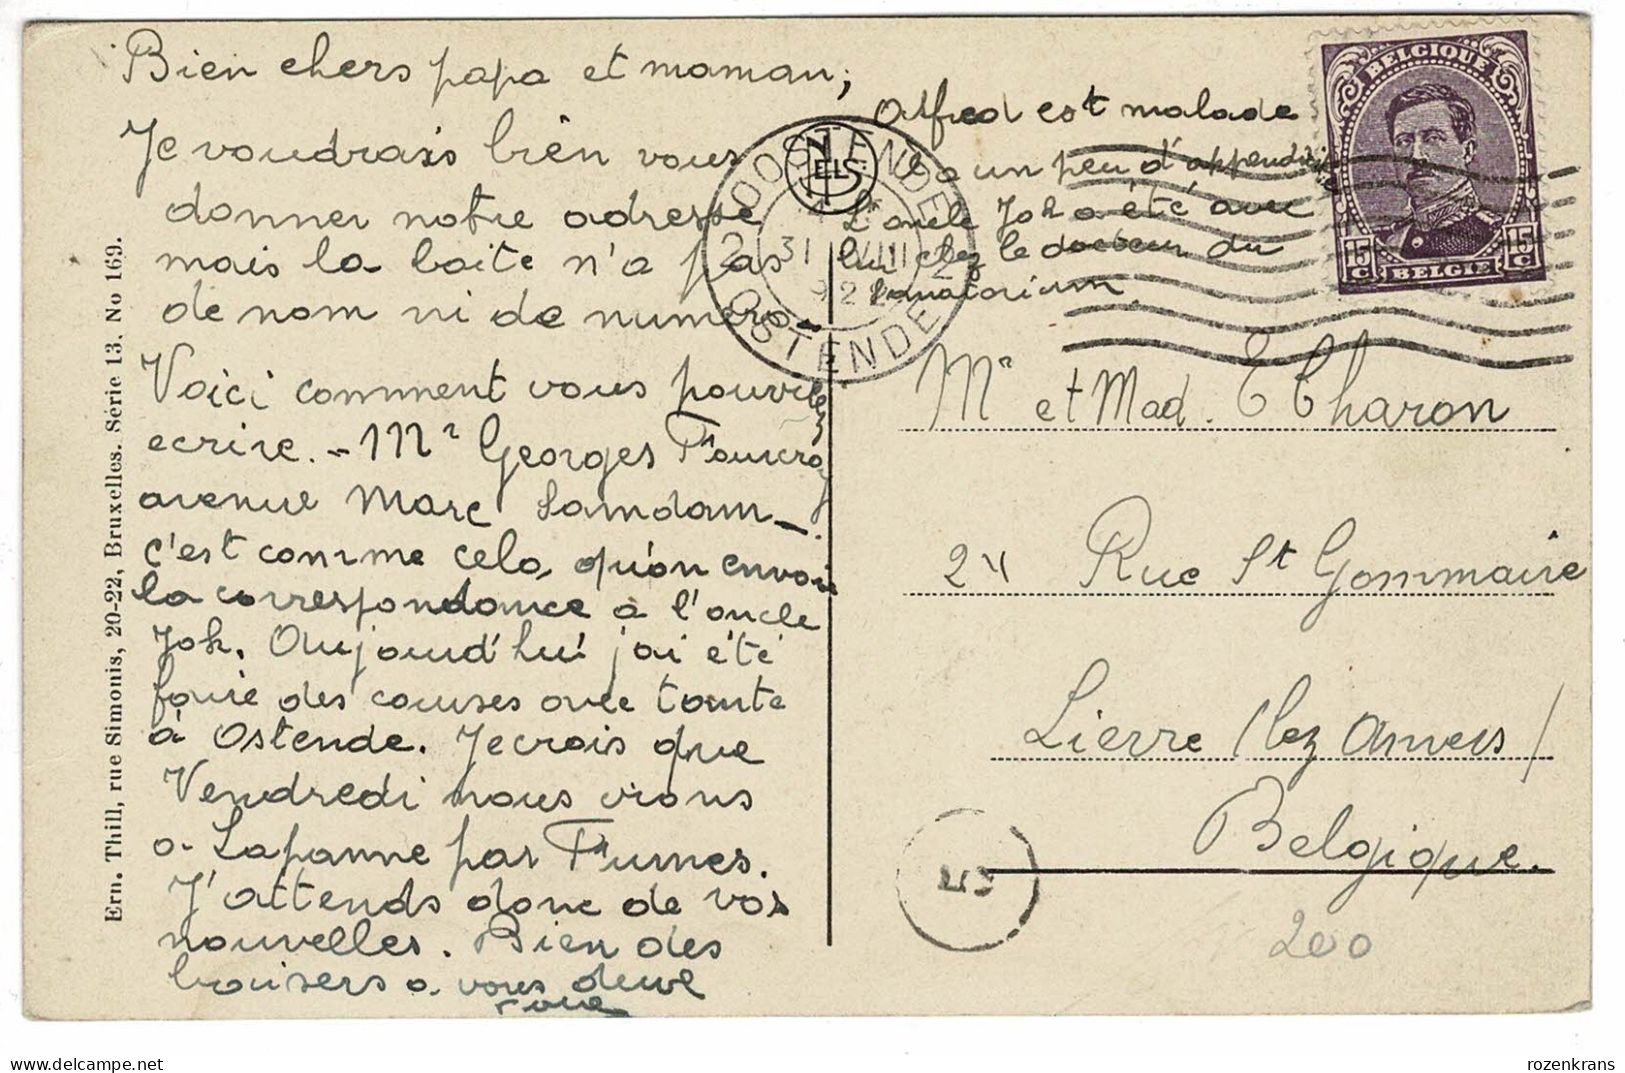 Bien chers papa et maman,
Je voudrais bien vous
donner notre adresse
mais la boite n'a pas
de nom ni de numéro.
Voici comment vous pouvez
ecrire. - Mr Georges
avenue Marc
c'est comme cela qu'on envoie
la correspondance à l'oncle
Joh. Aujourd'hui j'ai été
faire des courses avec tante
à Ostende. Je crois que
Vendredi nous irons
a Lapanne par Furnes.
J'attends donc de vos
nouvelles. Bien des
baisers a vous deux
Alfred est malade
il a un peu d'appendicite
L'oncle Joh a été avec
lui chez le docteur du
sanatorium.
NELS
OOSTENDE
2 31 VIII 2
OSTENDE
BELGIQUE
15 C 15 C
BELGIE
Mr et Mad. E Charon
24 Rue St Gommaire
Lierre (lez Anvers)
Belgique.
200
Ern. Thill, rue Simonis, 20-22, Bruxelles. Série 13. No 169.
rozenkrans
delcampe.net